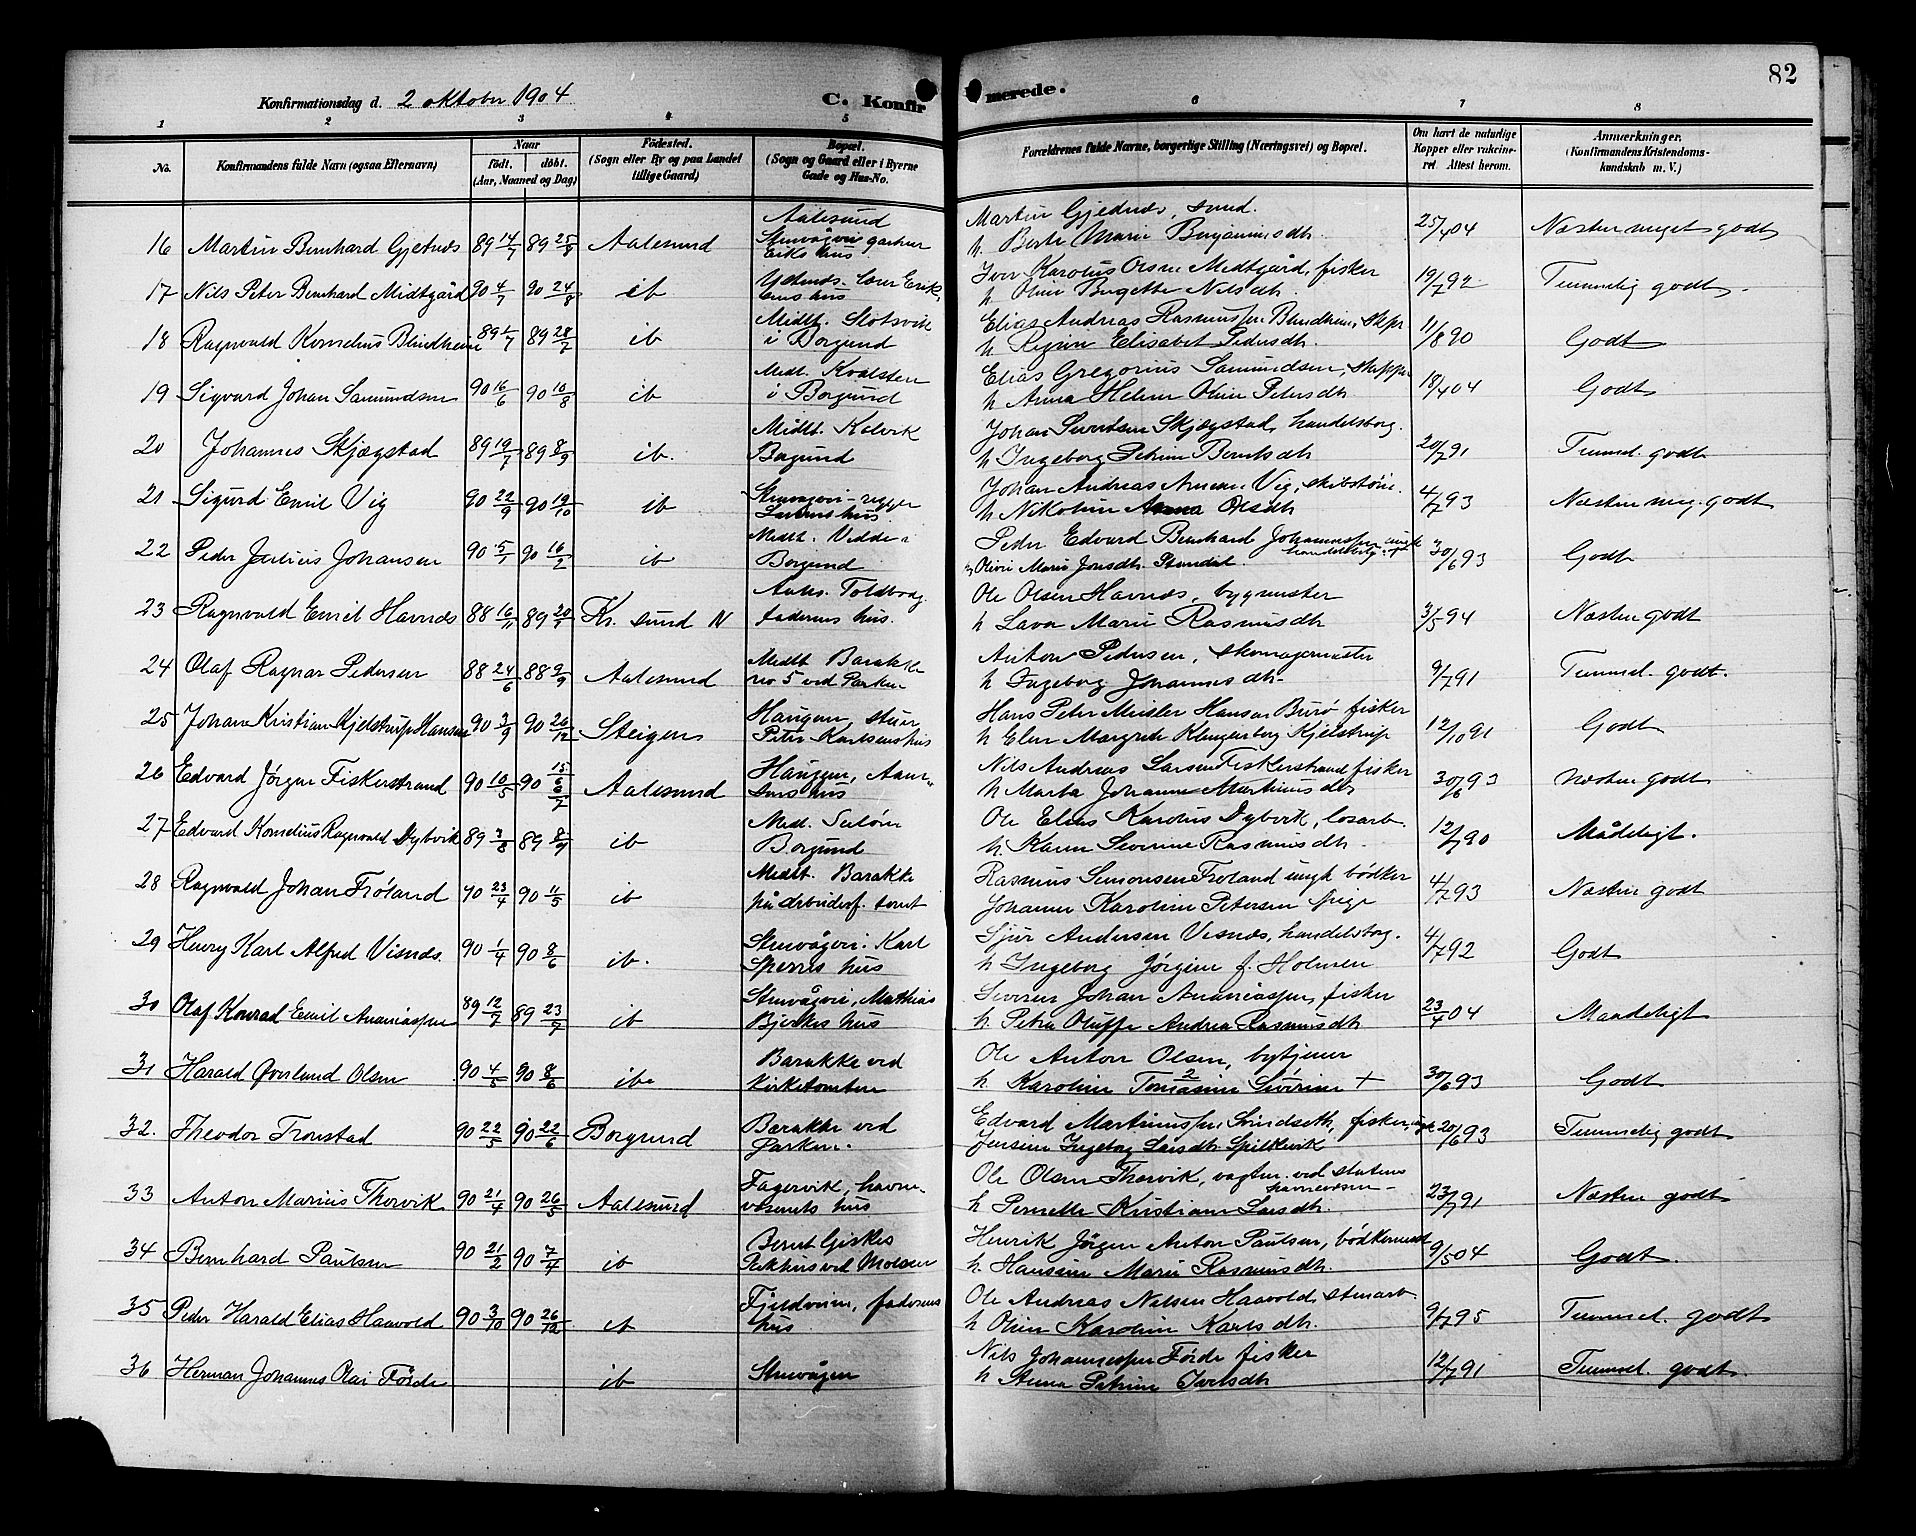 82
Konfirmationsdag d. 2 oktober 1904
C. Konfirmerede.
1 2 3 4 5 6 7 8
No.
Konfirmandens fulde Navn (ogsaa Efternavn)
Naar
født. døbt.
(Aar, Maaned og Dag)
Fødested.
(Sogn eller By og paa Landet
tillige Gaard)
Bopæl.
(Sogn og Gaard eller i Byerne
Gade og Hus-No.
Forældrenes fulde Navne, borgerlige Stilling (Næringsvei) og Bopæl.
Om havt de naturlige
Kopper eller vakcine-
ret. Attest herom.
Anmærkninger.
(Konfirmandens Kristendoms-
kundskab m. V.)
16 Martin Bernhard Gjetnes 89 14/7 89 25/8 Aalesund
Aalesund
Stenvågvei gartner
Eiks hus
Martin Gjednes, smed.
h. Berte Marie Benjaminsdtr.
25/4 04 Næsten meget godt
17 Nils Peter Bernhard Midtgård 90 4/7 90 24/8 ib
Iver Karolus Olsen Midtgård, fisker
h Oline Birgitte Nilsdtr.
19/7 92 Temmelig godt.
18 Ragnvald Kornelius Blindheim 89 1/7 89 28/7 ib
Midt. Slotsvik
i Borgund
Elias Andreas Rasmussen Blindheim, skpr
h Regine Elisabet Pedersdtr.
11/8 90 Godt
19 Sigvard Johan Samundsen 90 16/6 90 10/8 ib
Midt. Kvalsten
i Borgund
Elias Gregorius Samundsen, skipper
h Anna Helene Oline Petersdtr
18/4 04 Godt
20 Johannes Skjægstad 89 19/7 89 8/9 ib.
Midt. Kalvik
Borgund
Johan Severtsen Skjægstad, handelsborg.
h Ingeborg Petrine Berntsdtr
20/7 91 Temmel. godt
21 Sigurd Emil Vig 90 22/9 90 19/10 ib
Johan Andreas Vig, skibstøm.
h Nikoline Anna Olsdtr
4/7 93 Næsten meg. godt
22 Peder Julius Johansen 90 5/1 90 16/2 ib
Midt. Vedde i
Borgund
Peder Edvard Bernhard Johannessen ungk
handelsbetj.
Olivie Marie Jonsdtr. Stendal
30/6 93 Godt
23 Ragnvald Emil Havnes 88 16/11 89 20/1 Kr. sund N
Aales. Toldbodg.
faderens hus.
Ole Olsen Havnes, bygmester
h Lava Marie Rasmusdtr
3/5 94 Næsten godt
24 Olaf Ragnar Pedersen 88 24/6 88 9/9 Aalesund
Midt Barakke
no 5 ved Parken
Anton Pedersen, skomagermester
h Ingeborg Johannesdtr
9/7 91 Temmel. godt.
25 Johan Kristian Kjelstrup Hansen 90 3/9 90 26/12 Steigen
Haugen, stuer
Peter Karlsens hus
Hans Peter Meisler Hansen Burø fisker
h Elen Margrete Klingenborg Kjelstrup
12/10 91 Godt
26 Edvard Jørgen Fiskerstrand 90 10/5 90 15/6/7 Aalesund
Nils Andreas Larsen Fiskerstrand fisker
h Marta Johanne Martinusdtr
30/6 93 Næsten godt
27 Edvard Kornelius Ragnvald Dybvik 89 3/8 89 8/9 ib
Midt. Suløen
Borgund
Ole Elias Karolus Dybvik, løsarb.
h. Karen Severine Rasmusdtr.
12/7 90 Mådeligt.
28 Ragnvald Johan Frøland 90 23/4 90 11/5 ib
Midt. Barakke
på arbeiderf. tomt
Rasmus Simonsen Frøland ungk bødker
Johanne Karoline Petersen pige
4/7 93 Næsten godt
29 Henry Karl Alfred Visnes. 90 1/4 90 8/6 ib.
Stenvågvei. Karl
Sperres hus
Sjur Andersen Visnes, handelsborg.
h Ingeborg Jørgine f. Holmsen
4/7 92 Godt
30 Olaf Konrad Emil Ananiassen 89 12/7 89 23/7 ib
Stenvågvei, Mathias
Bjerkes hus
Severin Johan Ananiassen, fisker
h. Petra Oluffe Andrea Rasmusdtr
23/4 04 Maadeligt
31 Harald Øverlund Olsen 90 4/5 90 8/6 ib
Barakke ved
Kirketomten
Ole Anton Olsen, bytjener
h Karoline Tomasine Severine +
30/6 93 Godt
32. Theodor Tronstad 90 22/5 90 22/6 Borgund
Barakke ved
Parken.
Edvard Martinussen Svindseth, fisker, ungk
Jensine Ingeborg Larsdtr Spilkevik
20/6 93 Temmelig godt
33 Anton Marius Thorvik 90 21/4 90 26/5 Aalesund
Fagervik, havne-
væsenets hus
Ole Olsen Thorvik, vagtm. ved statens
havnevæsen
h Pernelle Kristiane Larsdtr.
23/7 91 Næsten godt
34 Bernhard Paulsen 90 21/2 90 7/4 ib
Bernt Giskes
Pakhus ved Moloen
Henrik Jørgen Anton Paulsen, bødkermest
h. Hansine Marie Rasmusdtr.
9/5 04 Godt.
35 Peder Harald Elias Haavold 90 3/10 90 26/12 ib
Fjeldveien, faderens
hus
Ole Andreas Nilsen Haavold, stenarb.
h Oline Karoline Karlsdtr.
9/7 95 Temmel. godt
36 Herman Johannes Olai Førde ib
Stenvågen
Nils Johannessen Førde fisker
h Anna Petrine Iversdtr
12/7 91 Temmel. godt